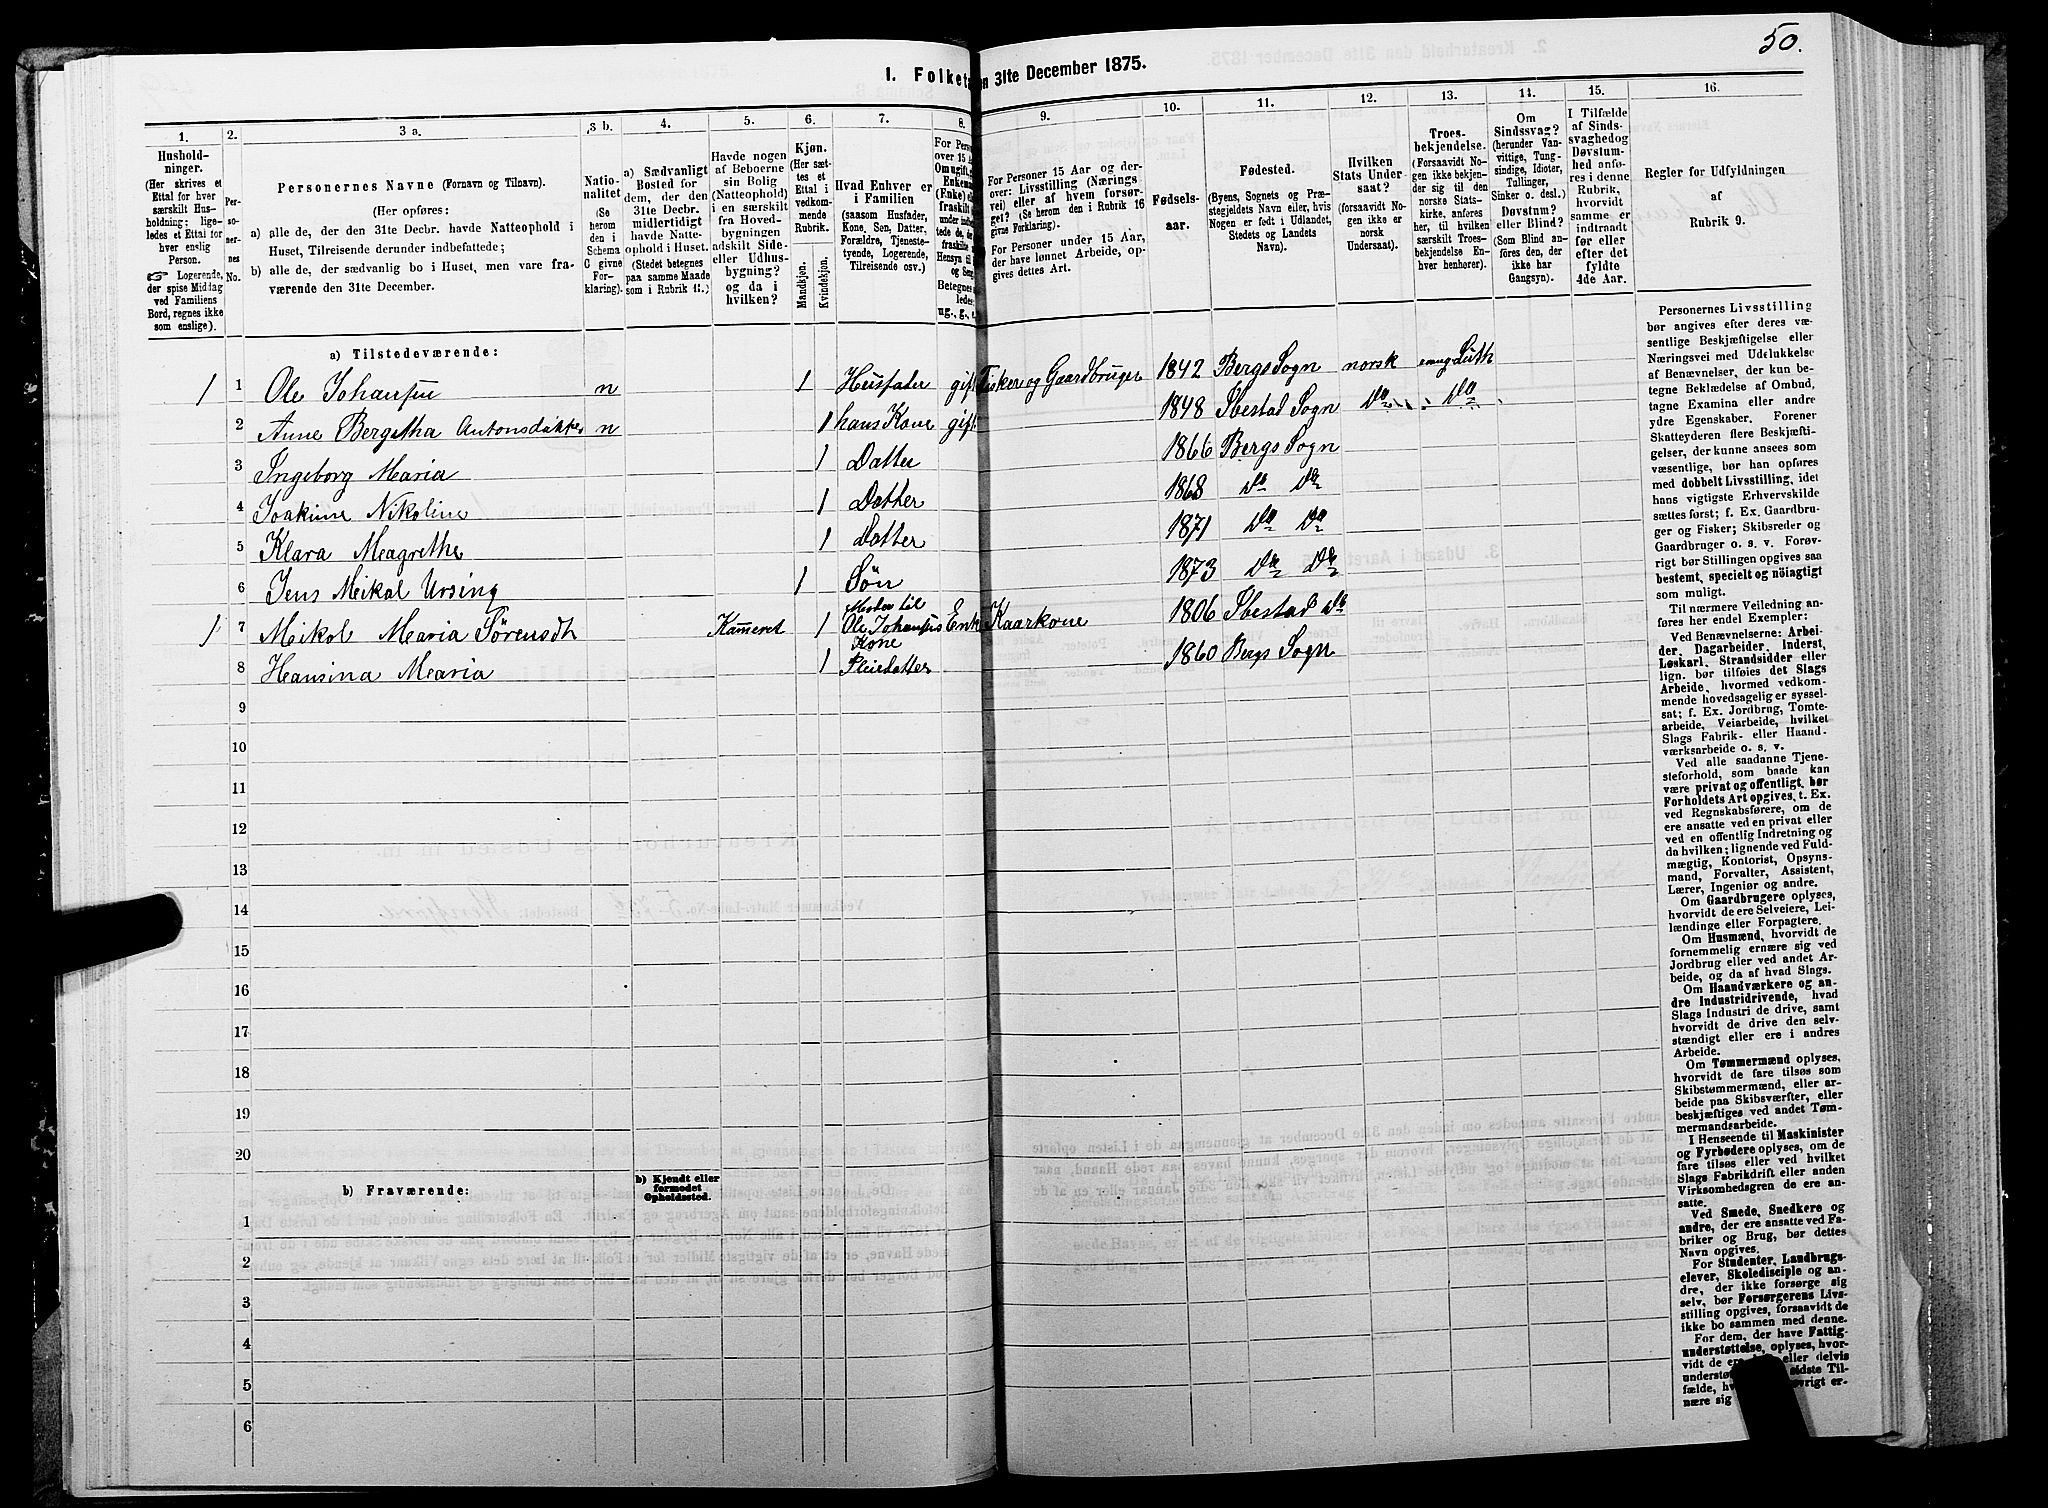 50.
1. Folketæ
n 31te December 1875.
1.
2.
3 a.
3 b.
4.
5.
6.
7.
8.
9.
10.
11.
12.
13.
14.
15.
16.
Hushold-
ninger.
(Her skrives et
Ettal for hver
særskilt Hus-
holdning; lige-
ledes et Ettal for
hver enslig
Person.
☞ Logerende,
der spise Middag
ved Familiens
Bord, regnes ikke
som enslige).
Per-
so-
ner-
nes
No.
Personernes Navne (Fornavn og Tilnavn).
(Her opføres:
a) alle de, der den 31te Decbr. havde Natteophold i
Huset, Tilreisende derunder indbefattede;
b) alle de, der sædvanlig bo i Huset, men vare fra-
værende den 31te December.
Natio-
nalitet
(Se
herom
den i
Schema
C givne
For-
klaring).
a) Sædvanligt
Bosted for
dem, der den
31te Decbr.
midlertidigt
havde Natte-
ophold i Huset.
(Stedet betegnes
paa samme Maade
som i Rubrik 11.)
Havde nogen
af Beboerne
sin Bolig
(Natteophold)
i en særskilt
fra Hoved-
bygningen
adskilt Side-
eller Udhus-
bygning?
og da i
hvilken?
Kjøn.
(Her sæt-
tes et
Ettal i
vedkom-
mende
Rubrik.
Mandkjøn.
Kvindekjøn.
Hvad Enhver er
i Familien
(saasom Husfader,
Kone, Søn, Datter,
Forældre, Tjeneste-
tyende, Logerende,
Tilreisende osv.)
For Person
over 15 A
Om ugift,
Enkema
(Enke) e
fraskilt
under indb
tede de,
fraskilte
Hensyn til
og Seng
Betegnes
ledes:
ug., g.,
For Personer 15 Aar og der-
over: Livsstilling (Nærings-
vei) eller af hvem forsør-
get? (Se herom den i Rubrik 16
givne Forklaring).
For Personer under 15 Aar,
der have lønnet Arbeide, op-
gives dettes Art.
Fødsels-
aar.
Fødested.
(Byens, Sognets og Præ-
stegjeldets Navn eller, hvis
Nogen er født i Udlandet,
Stedets og Landets
Navn).
Hvilken
Stats Under-
saat?
(forsaavidt No-
gen ikke er
norsk
Undersaat).
Troes-
bekjendelse.
(Forsaavidt No-
gen ikke bekjen-
der sig til den
norske Stats-
kirke, anføres
her, til hvilken
særskilt Troes-
bekjendelse En-
hver henhører).
Om
Sindssvag?
(herunder Van-
vittige, Tung-
sindige, Idioter,
Tullinger,
Sinker o. desl.)
Døvstum?
eller Blind?
(Som Blind an-
føres den, der
ikke har
Gangsyn).
I Tilfælde
af Sinds-
svaghed og
Døvstum-
hed anfø-
res i denne
Rubrik,
hvorvidt
samme er
indtraadt
før eller
efter det
fyldte
4de Aar.
Regler for Udfyldningen
af
Rubrik 9.
a) Tilstedeværende:
1 1 Ole Johansen n 1 Husfader gift Fisker og Gaardbruger 1842 Bergs Sogn norsk evang Luth
2 Anne Bergitha Antonsdatter n 1 hans Kone gift 1848 Ibestad Sogn Do Do
3 Ingeborg Maria 1 Datter 1866 Bergs Sogn
4 Joakime Nikoline 1 Datter 1868 Do Do
5 Klara Magrethe 1 Datter 1871 Do Do
6 Jens Mikal Ursing 1 Søn 1873 Do Do
Moder til
1 7 Mikal Maria Sörensdt Kammeret 1 Ole Johansens Enke Kaarkone 1806 Ibestad Do
Kone
8 Hansina Maria 1 Pleiedatter 1860 Bergs Sogn
9
10
11
12
13
14
15
16
17
18
19
20
b) Fraværende:
b) Kjendt eller
formodet
Opholdssted.
1
2
3
4
5
6
Personernes Livsstilling
bør angives efter deres væ-
sentlige Beskjæftigelse eller
Næringsvei med Udelukkelse
af Benævnelser, der kun be-
tegne Beklædelse af Ombud,
tagne Examina eller andre
ydre Egenskaber. Forener
Skatteyderen flere Beskjæfti-
gelser, der kunne ansees som
væsentlige, bør han opføres
med dobbelt Livsstilling, idet
hans vigtigste Erhvervskilde
sættes først; f. Ex. Gaardbru-
ger og Fisker; Skibsreder og
Gaardbruger o. s. v. Forøv-
rigt bør Stillingen opgives saa
bestemt, specielt og nöiagtigt
som muligt.
Til nærmere Veiledning an-
føres her endel Exempler:
Ved Benævnelserne: Arbei-
der, Dagarbeider, Inderst,
Løskarl, Strandsidder eller
lign. bør tilføies det Slags
Arbeide, hvormed vedkom-
mende hovedsagelig er syssel-
sat; f. Ex. Jordbrug, Tomte-
arbeide, Veiarbeide, hvilket
Slags Fabrik- eller Haand-
værksarbeide o. s. v.
Ved alle saadanne Tjene-
steforhold, som baade kan
være privat og offentligt, bør
Forholdets Art opgives, t. Ex.
ved Regnskabsførere, om de
ere ansatte ved en privat eller
ved en offentlig Indretning og
da hvilken; lignende ved Fuld-
mægtig, Kontorist, Opsyns-
mand, Forvalter, Assistent,
Lærer, Ingeniør og andre.
Om Gaardbrugere oplyses,
hvorvidt de ere Selveiere, Lei-
lændinge eller Forpagtere.
Om Husmænd, hvorvidt de
fornemmelig ernære sig ved
Jordbrug eller ved andet Ar-
beide, og da af hvad Slags.
Om Haandværkere og an-
dre Industridrivende, hvad
Slags Industri de drive, samt
hvorvidt de drive den selv-
stændigt eller ere i andres
Arbeide.
Om Tømmermænd oplyses,
hvorvidt de fare tilsøs som
Skibstømmermænd, eller ar-
beide paa Skibsværfter, eller
beskjæftiges ved andet Tøm-
mermandsarbeide.
I Henseende til Maskinister
og Fyrbødere oplyses, om de
fare tilsøs eller ved hvilket
Slags Fabrikdrift eller anden
Virksomhedsgren de ere an-
satte.
Ved Smede, Snedkere og
andre, der ere ansatte ved Fa-
briker og Brug, bør dettes
Navn opgives.
For Studenter, Landbrugs-
elever, Skoledisciple og an-
dre, der ikke forsørge sig
selv, bør Forsørgerens Livs-
stilling opgives, forsaavidt de
ikke bo sammen med denne.
For dem, der have Fattig-
understøttelse, oplyses, hvor-
vidt de ere eller delvis
underst sidste Til-
fælde, h vrigt er-
nære sig